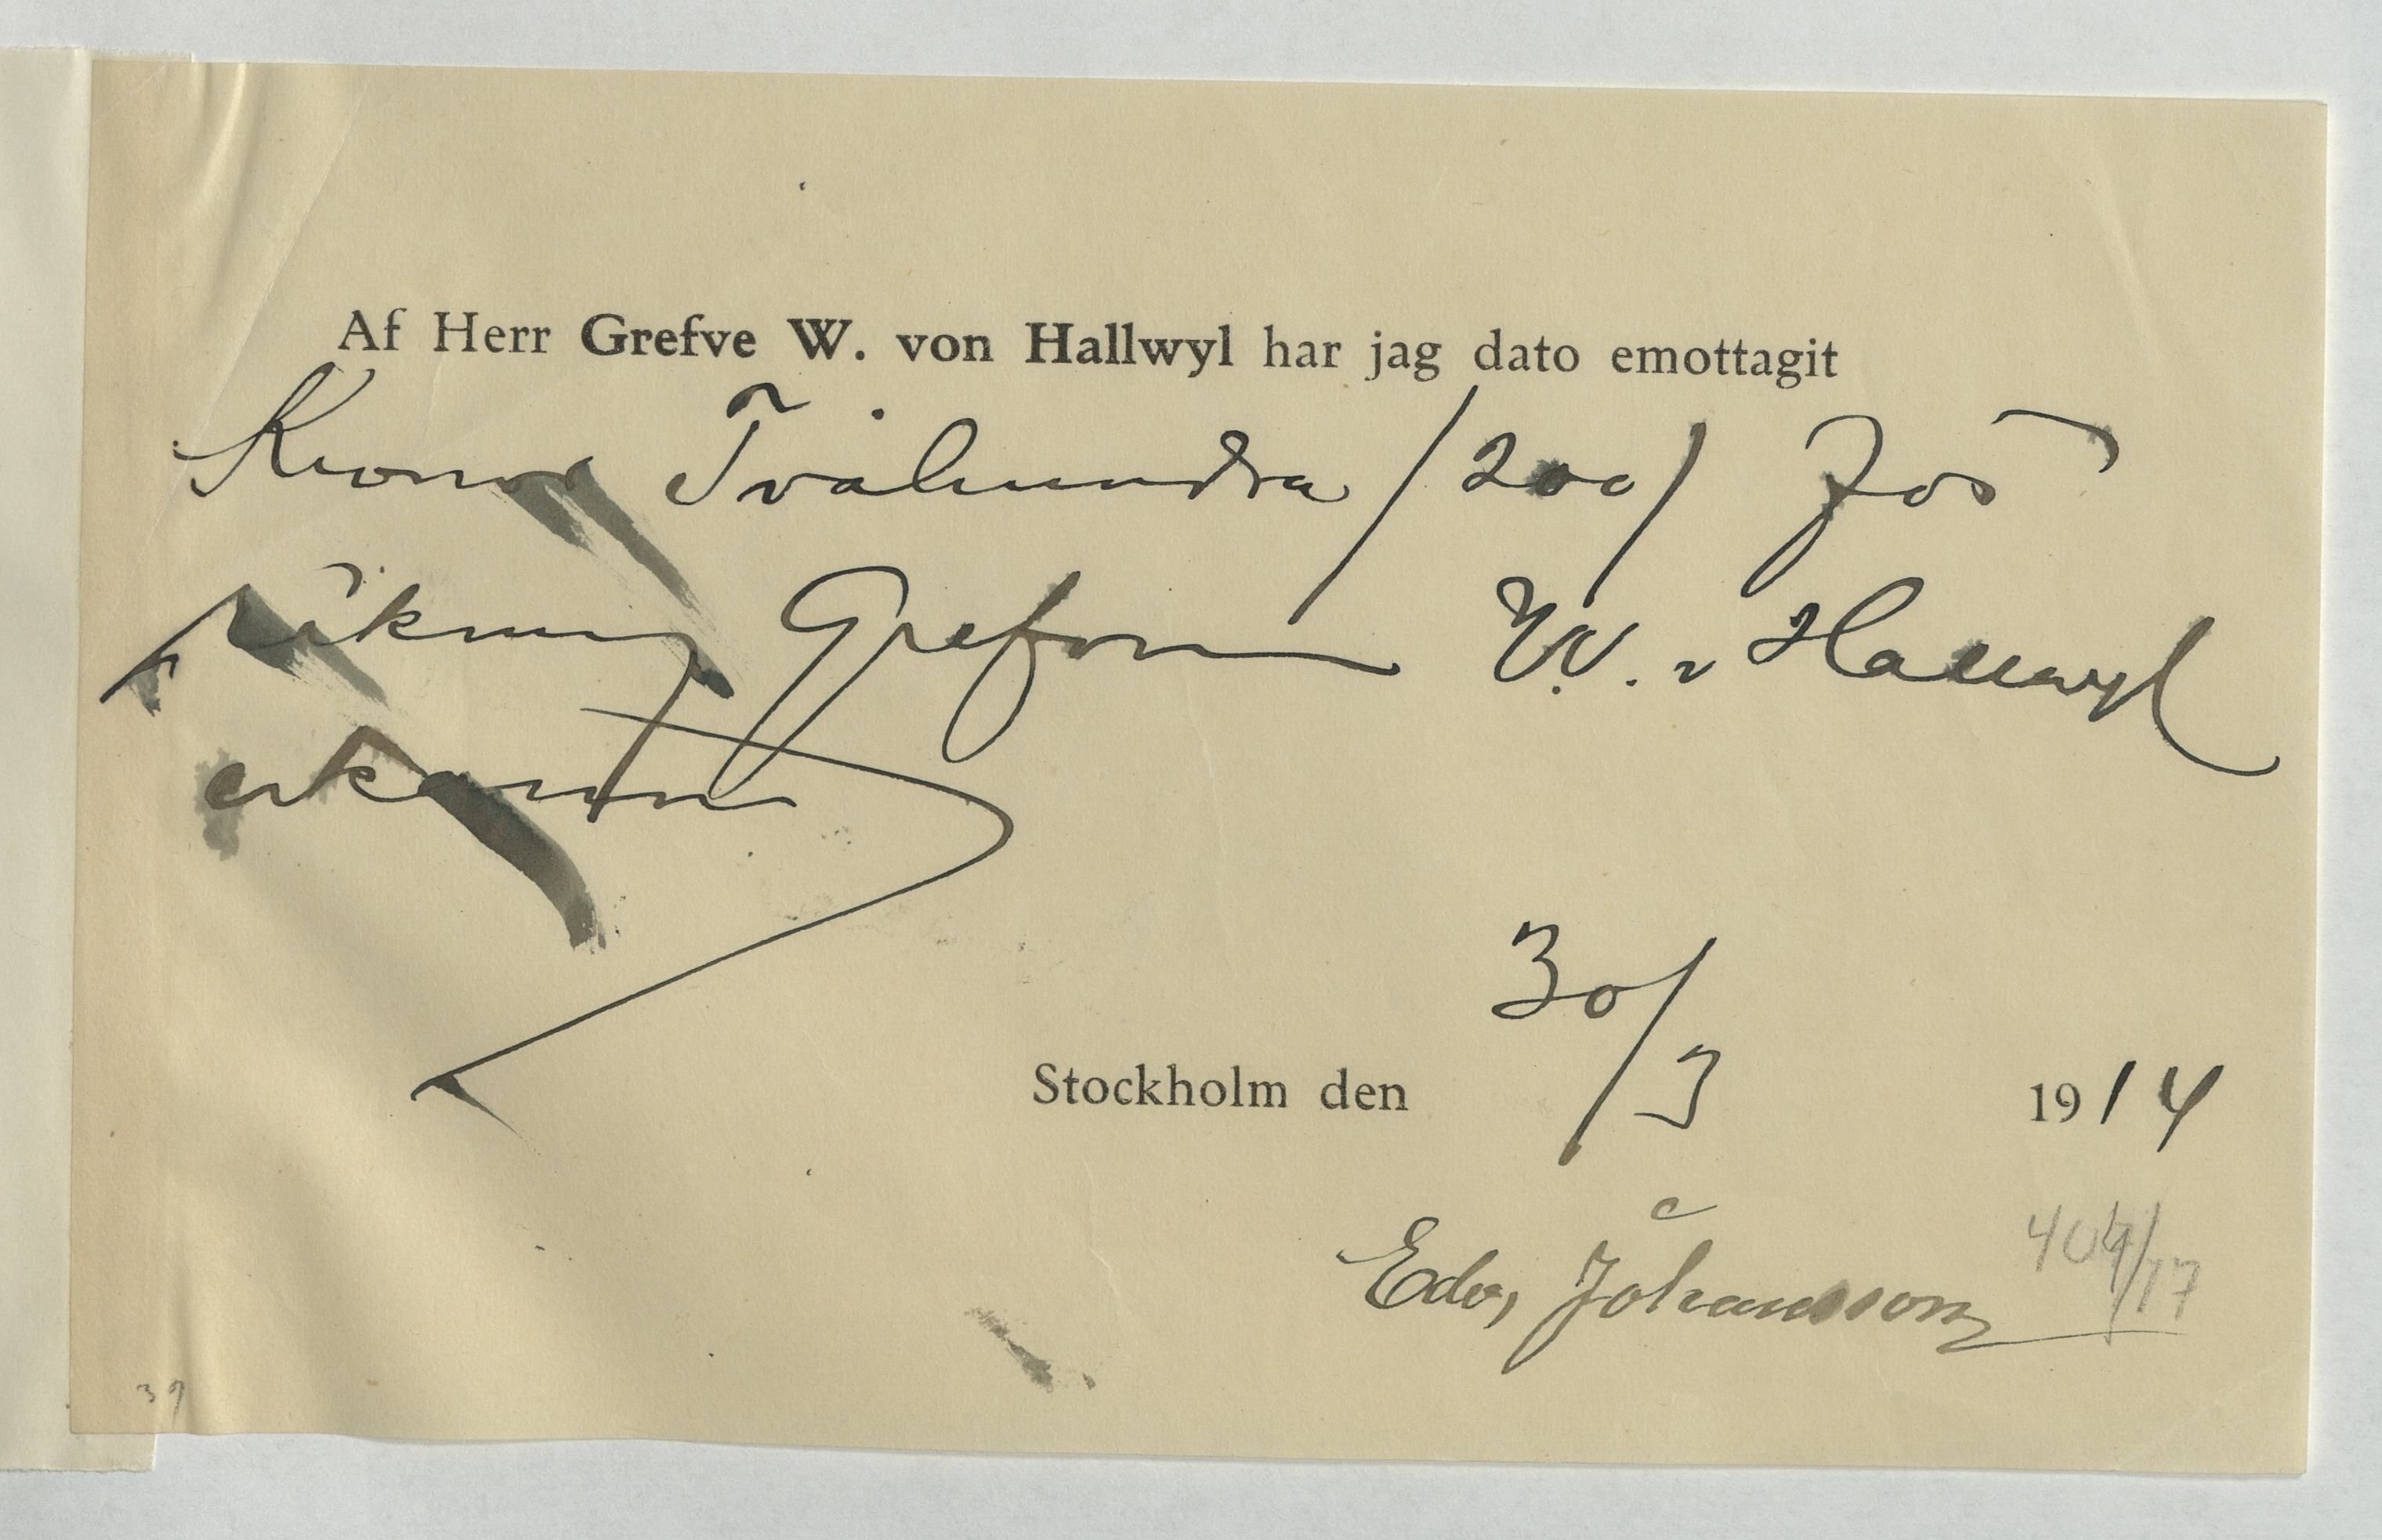 Af Herr Grefve W. von Hallwyl har jag dato emottagit
Kronor Tvåhundra /200/ för
räkning Grefven W. v Hallwyl
erkännes
Stockholm den 30/3 1914
Edv, Johansson
404/17
39